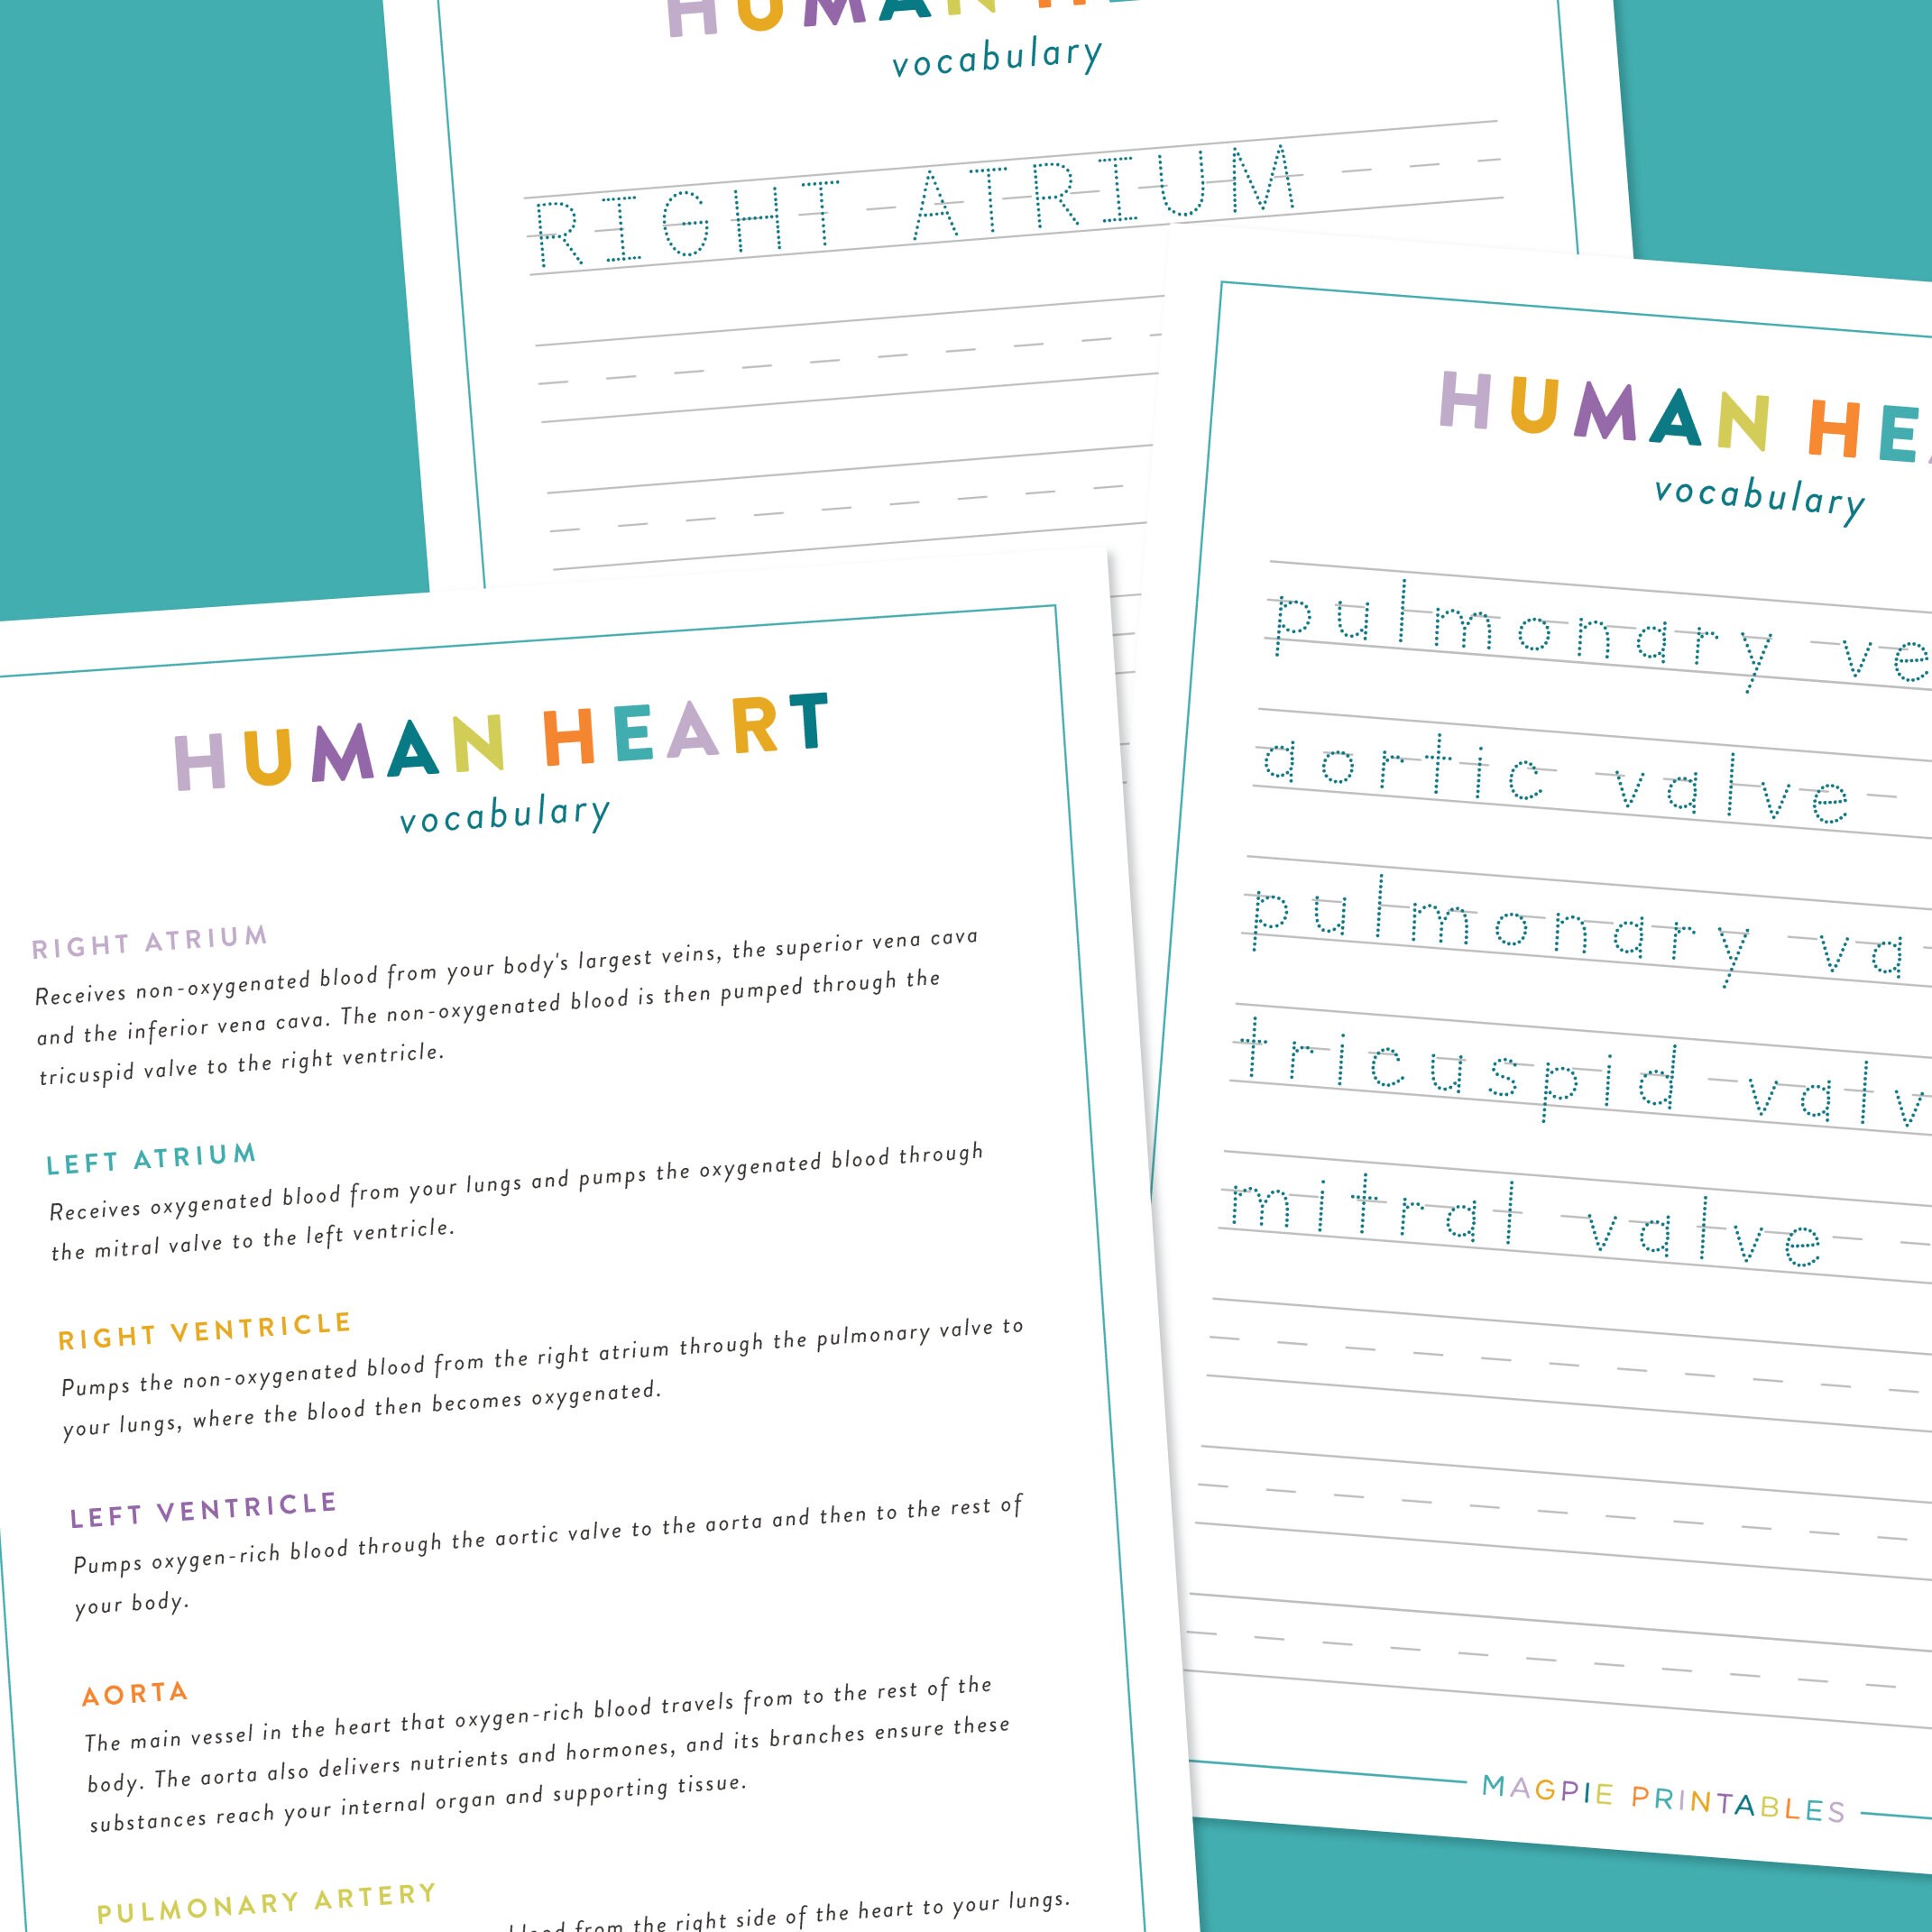 HUMAN HE
vocabulary
RIGHT ATRIUM
HUMAN HEA
vocabulary
pulmonary ve
aortic valve
pulmonary va
tricuspid valv
mitral valve
MAGPIE PRINTABLES
HUMAN HEART
vocabulary
RIGHT ATRIUM
Receives non-oxygenated blood from your body's largest veins, the superior vena cava
and the inferior vena cava. The non-oxygenated blood is then pumped through the
tricuspid valve to the right ventricle.
LEFT ATRIUM
Receives oxygenated blood from your lungs and pumps the oxygenated blood through
the mitral valve to the left ventricle.
RIGHT VENTRICLE
Pumps the non-oxygenated blood from the right atrium through the pulmonary valve to
your lungs, where the blood then becomes oxygenated.
LEFT VENTRICLE
Pumps oxygen-rich blood through the aortic valve to the aorta and then to the rest of
your body.
AORTA
The main vessel in the heart that oxygen-rich blood travels from to the rest of the
body. The aorta also delivers nutrients and hormones, and its branches ensure these
substances reach your internal organ and supporting tissue.
PULMONARY ARTERY
blood from the right side of the heart to your lungs.